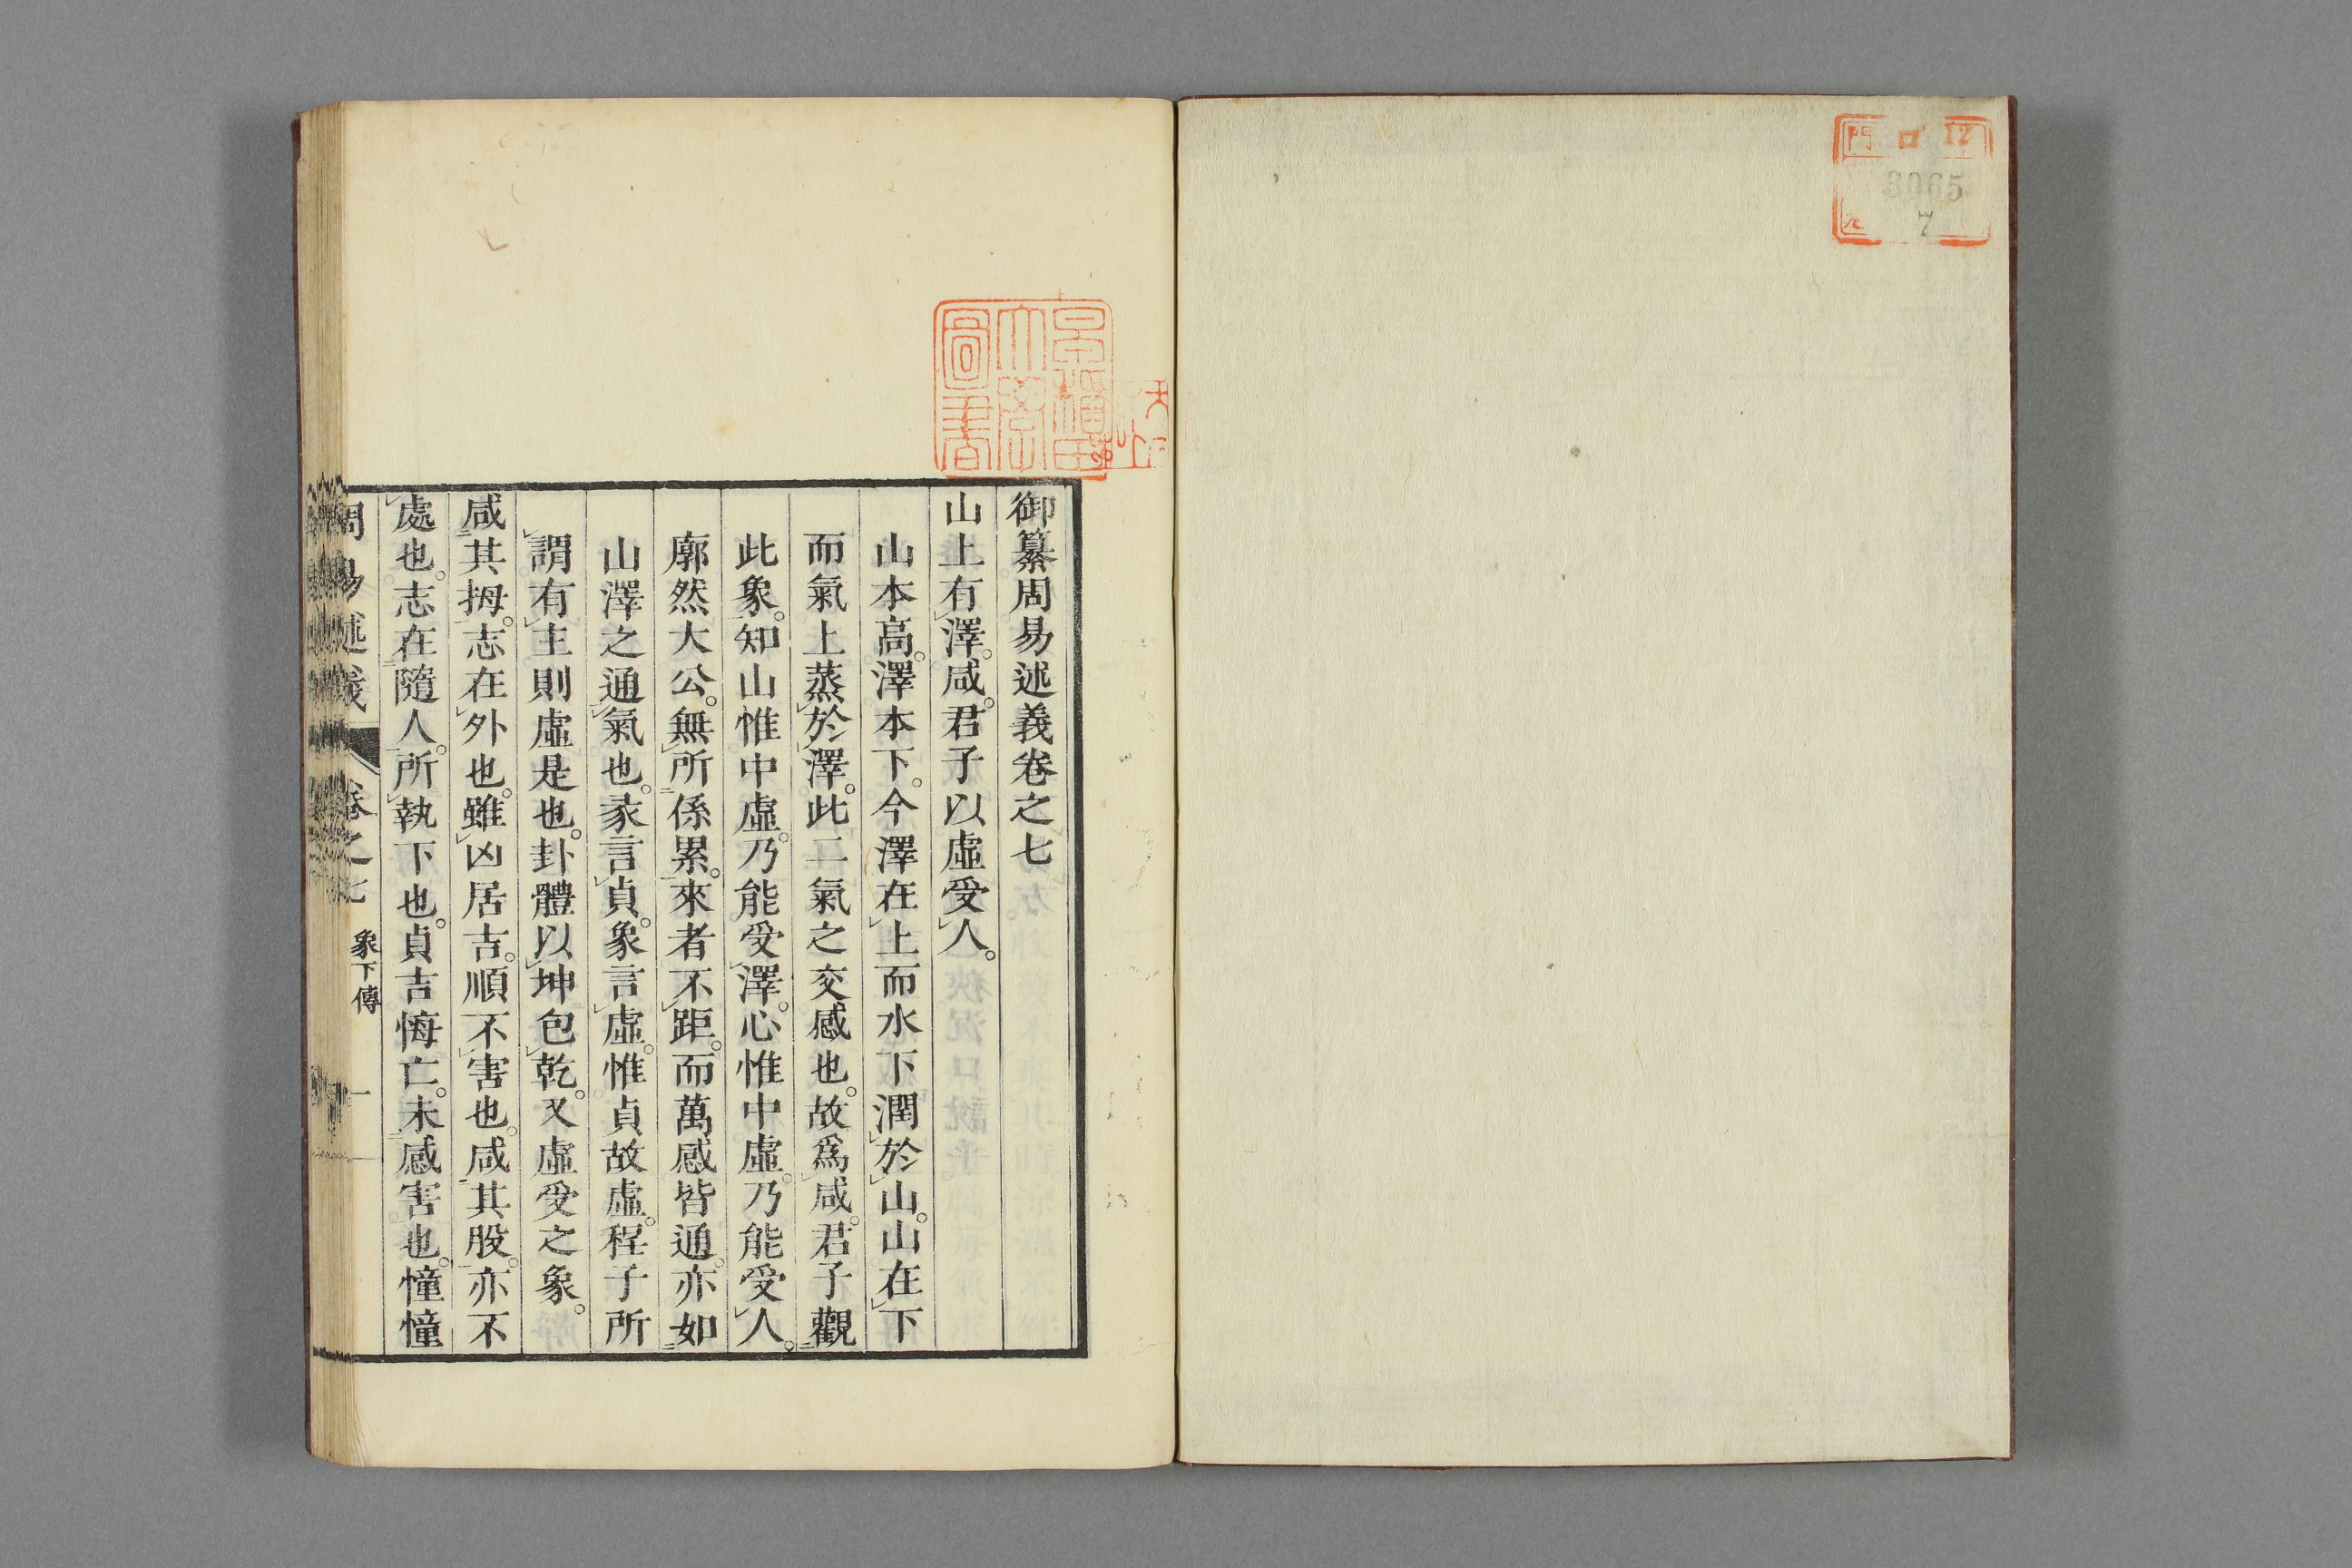 門 口 12
3065
7
早稲田
大學
圖書
御纂周易述義卷之七
山上有澤。咸。君子以虛受人。
山本高。澤本下。今澤在上而水下潤於山。山在下
而氣上蒸於澤。此二氣之交感也。故爲咸。君子觀
此象。知山惟中虛。乃能受澤。心惟中虛。乃能受人。
廓然大公。無所係累。來者不距。而萬感皆通。亦如
山澤之通氣也。彖言貞。象言虛。惟貞故虛。程子所
謂有主則虛是也。卦體以坤包乾。又虛受之象。
咸其拇。志在外也。雖凶居吉。順不害也。咸其股。亦不
處也。志在隨人。所執下也。貞吉悔亡。未感害也。憧憧
周易述義 卷之七 象下傳 一